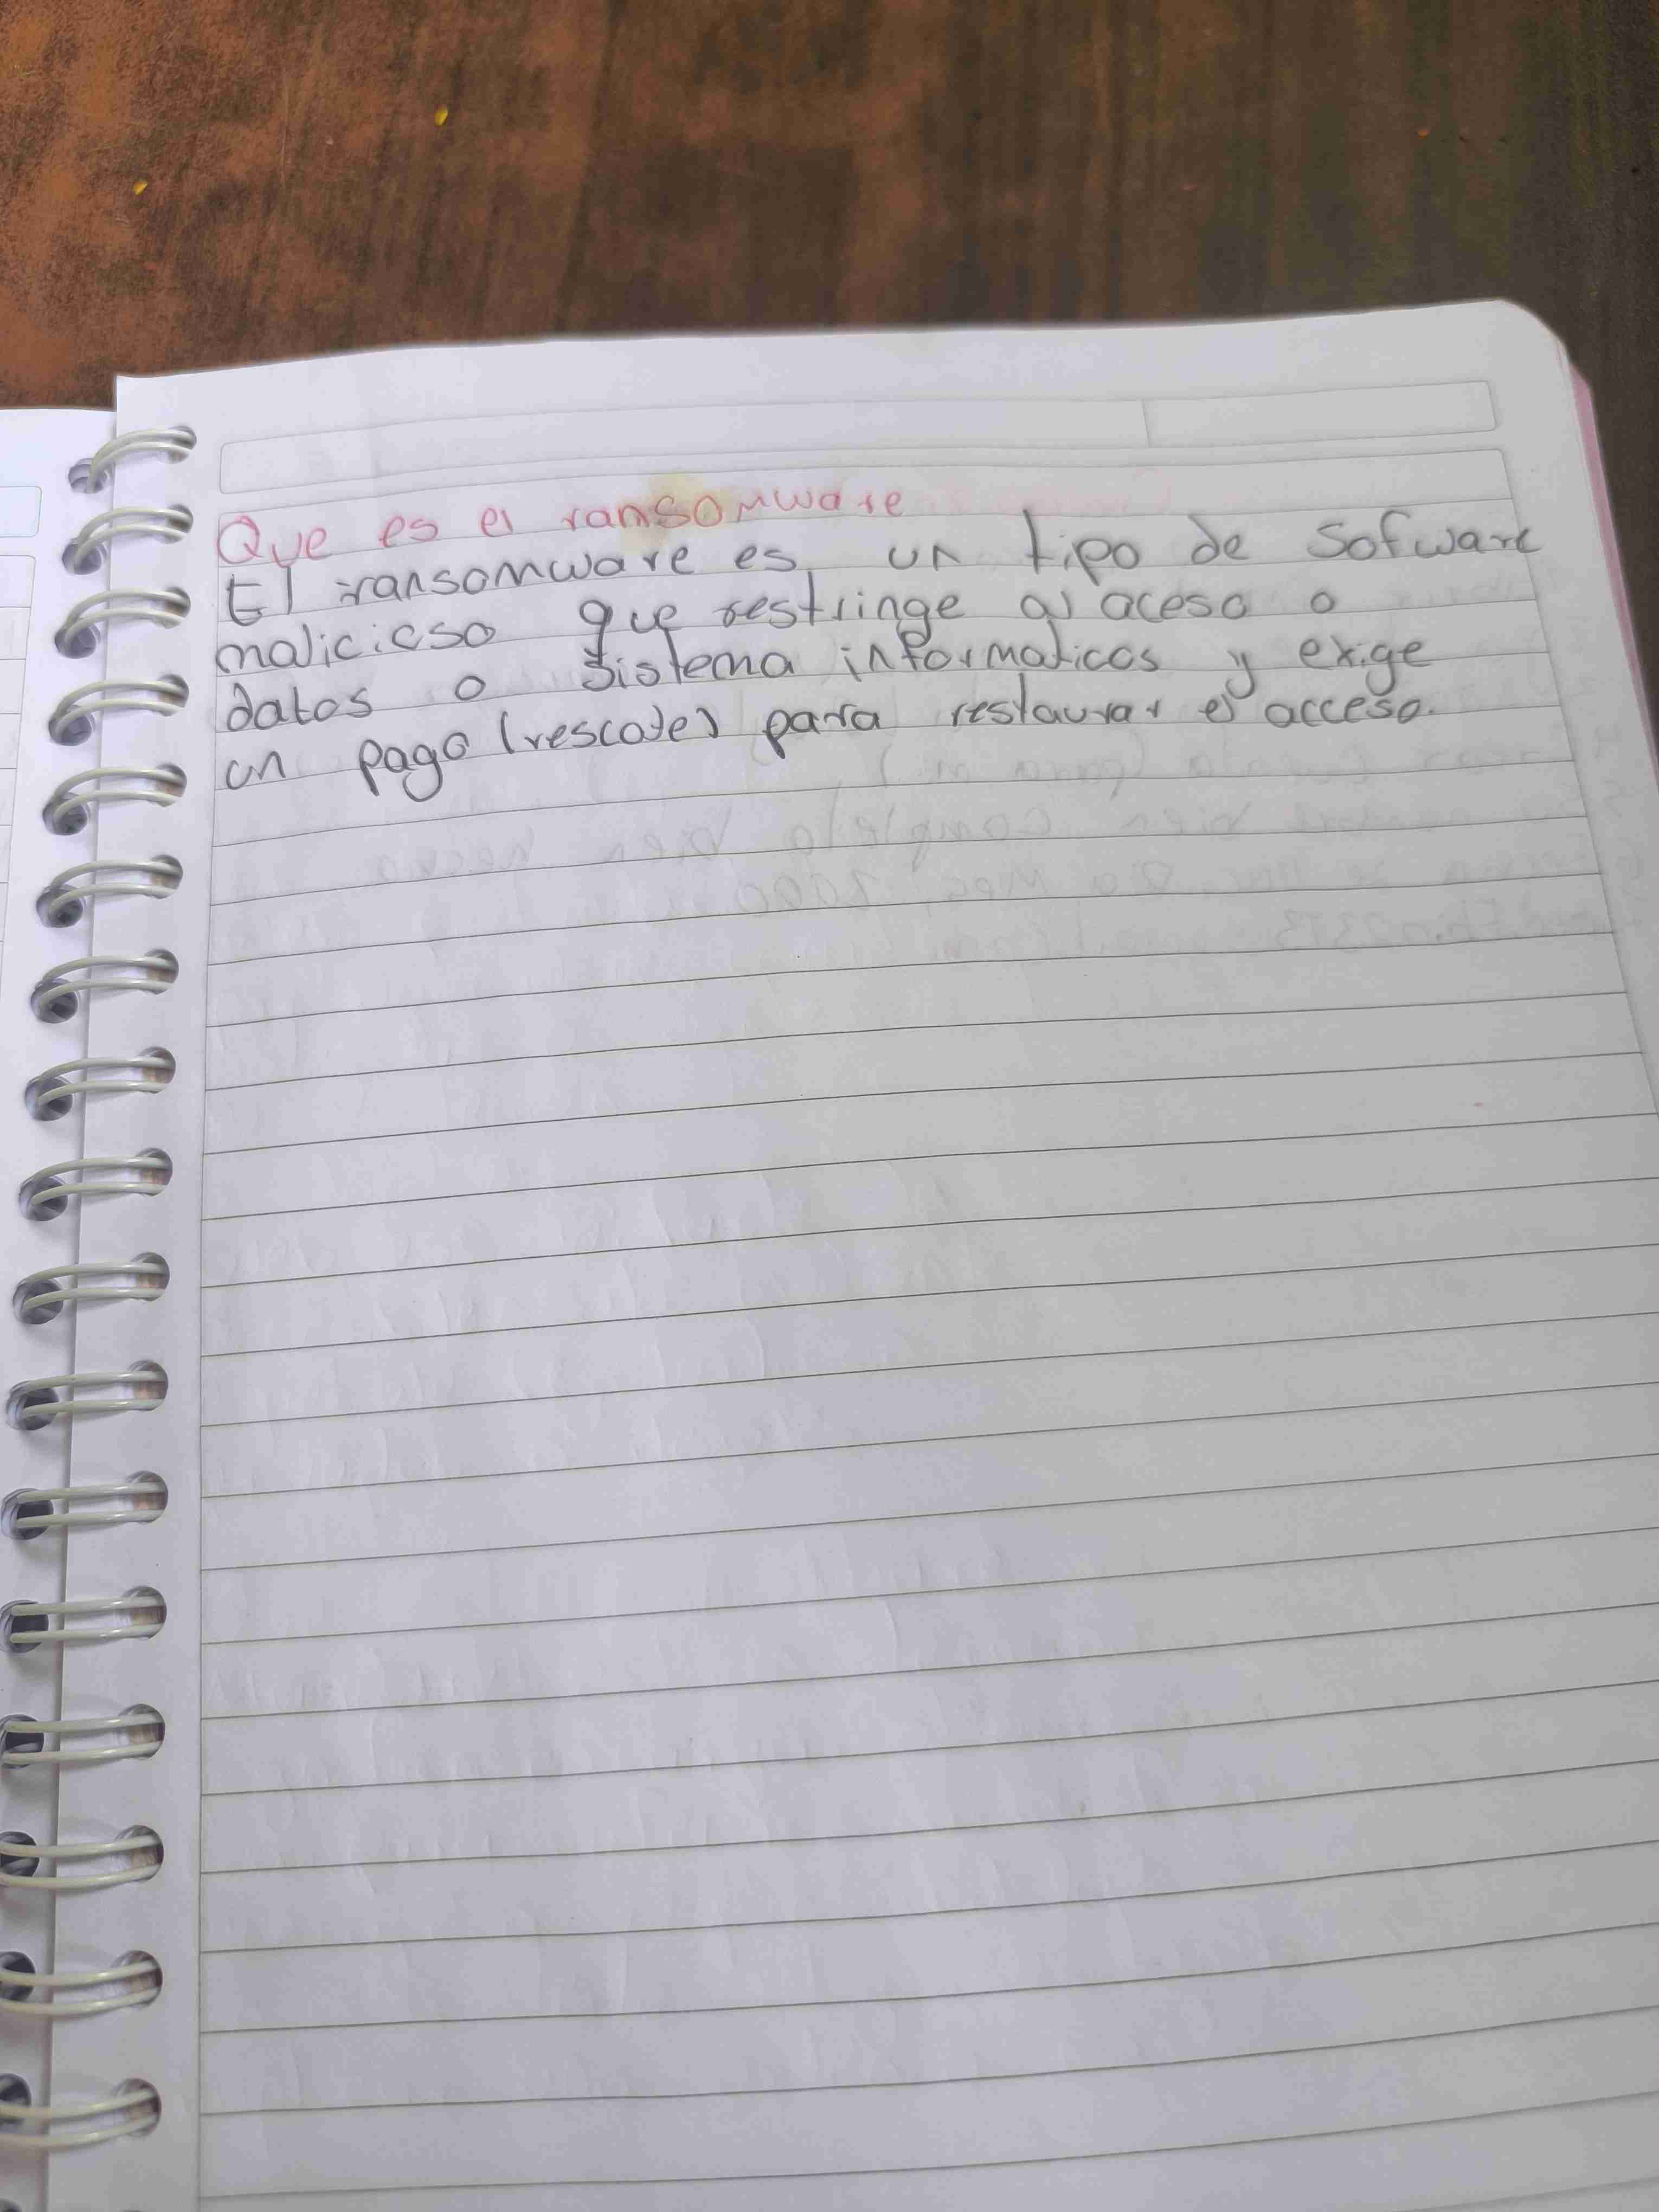 Que es el ransomware
El ransomware es un tipo de Sofware
malicioso que restringe al aceso o
datos o sistema informaticos y exige
un pago (rescate) para restaurar el acceso.